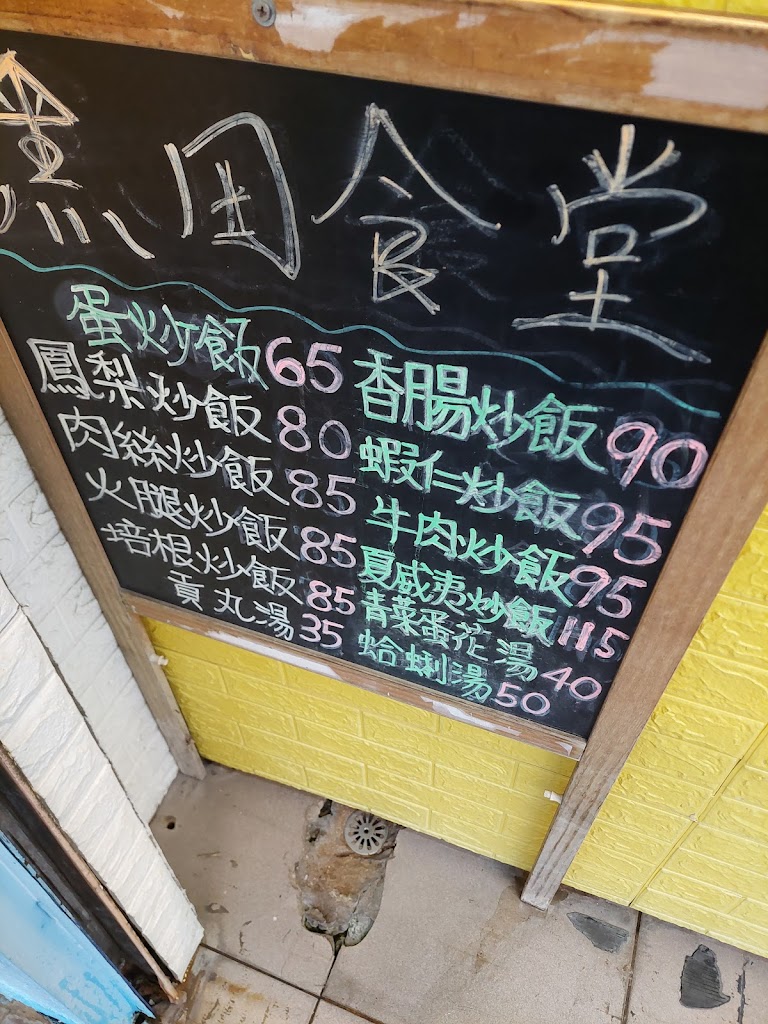 食堂
蛋炒飯 65
鳳梨炒飯 80
肉絲炒飯 85
火腿炒飯 85
培根炒飯 85
貢丸湯 35
香腸炒飯 90
蝦仁炒飯 95
牛肉炒飯 95
夏威夷炒飯 115
青菜蛋花湯 40
蛤蜊湯 50